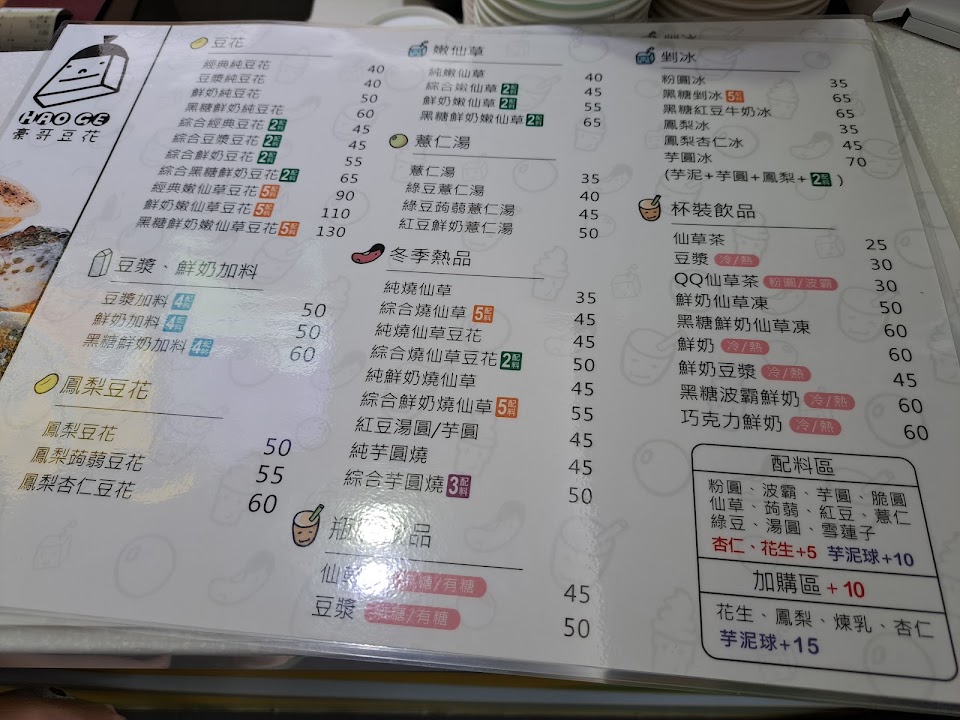 HAO GE
豪哥豆花
豆花
經典純豆花 40
豆漿純豆花 40
鮮奶純豆花 50
黑糖鮮奶純豆花 60
綜合經典豆花 2配料 45
綜合豆漿豆花 2配料 45
綜合鮮奶豆花 2配料 55
綜合黑糖鮮奶豆花 2配料 65
經典嫩仙草豆花 5配料 90
鮮奶嫩仙草豆花 5配料 110
黑糖鮮奶嫩仙草豆花 5配料 130
豆漿、鮮奶加料
豆漿加料 4配料 50
鮮奶加料 4配料 50
黑糖鮮奶加料 4配料 60
鳳梨豆花
鳳梨豆花 50
鳳梨蒟蒻豆花 55
鳳梨杏仁豆花 60
嫩仙草
純嫩仙草 40
綜合嫩仙草 2配料 45
鮮奶嫩仙草 2配料 55
黑糖鮮奶嫩仙草 2配料 65
薏仁湯
薏仁湯 35
綠豆薏仁湯 40
綠豆蒟蒻薏仁湯 45
紅豆鮮奶薏仁湯 50
冬季熱品
純燒仙草 35
綜合燒仙草 5配料 45
純燒仙草豆花 45
綜合燒仙草豆花 2配料 50
純鮮奶燒仙草 45
綜合鮮奶燒仙草 5配料 55
紅豆湯圓/芋圓 45
純芋圓燒 45
綜合芋圓燒 3配料 50
瓶 品
仙草 糖/有糖 45
豆漿 無糖/有糖 50
剉冰
剉冰
粉圓冰 35
黑糖剉冰 5配料 65
黑糖紅豆牛奶冰 65
鳳梨冰 35
鳳梨杏仁冰 45
芋圓冰 70
(芋泥+芋圓+鳳梨+2配料)
杯裝飲品
仙草茶 25
豆漿 冷/熱 30
QQ仙草茶 粉圓/波霸 30
鮮奶仙草凍 50
黑糖鮮奶仙草凍 60
鮮奶 冷/熱 60
鮮奶豆漿 冷/熱 45
黑糖波霸鮮奶 冷/熱 60
巧克力鮮奶 冷/熱 60
配料區
粉圓、波霸、芋圓、脆圓
仙草、蒟蒻、紅豆、薏仁
綠豆、湯圓、雪蓮子
杏仁、花生+5 芋泥球+10
加購區 +10
花生、鳳梨、煉乳、杏仁
芋泥球+15